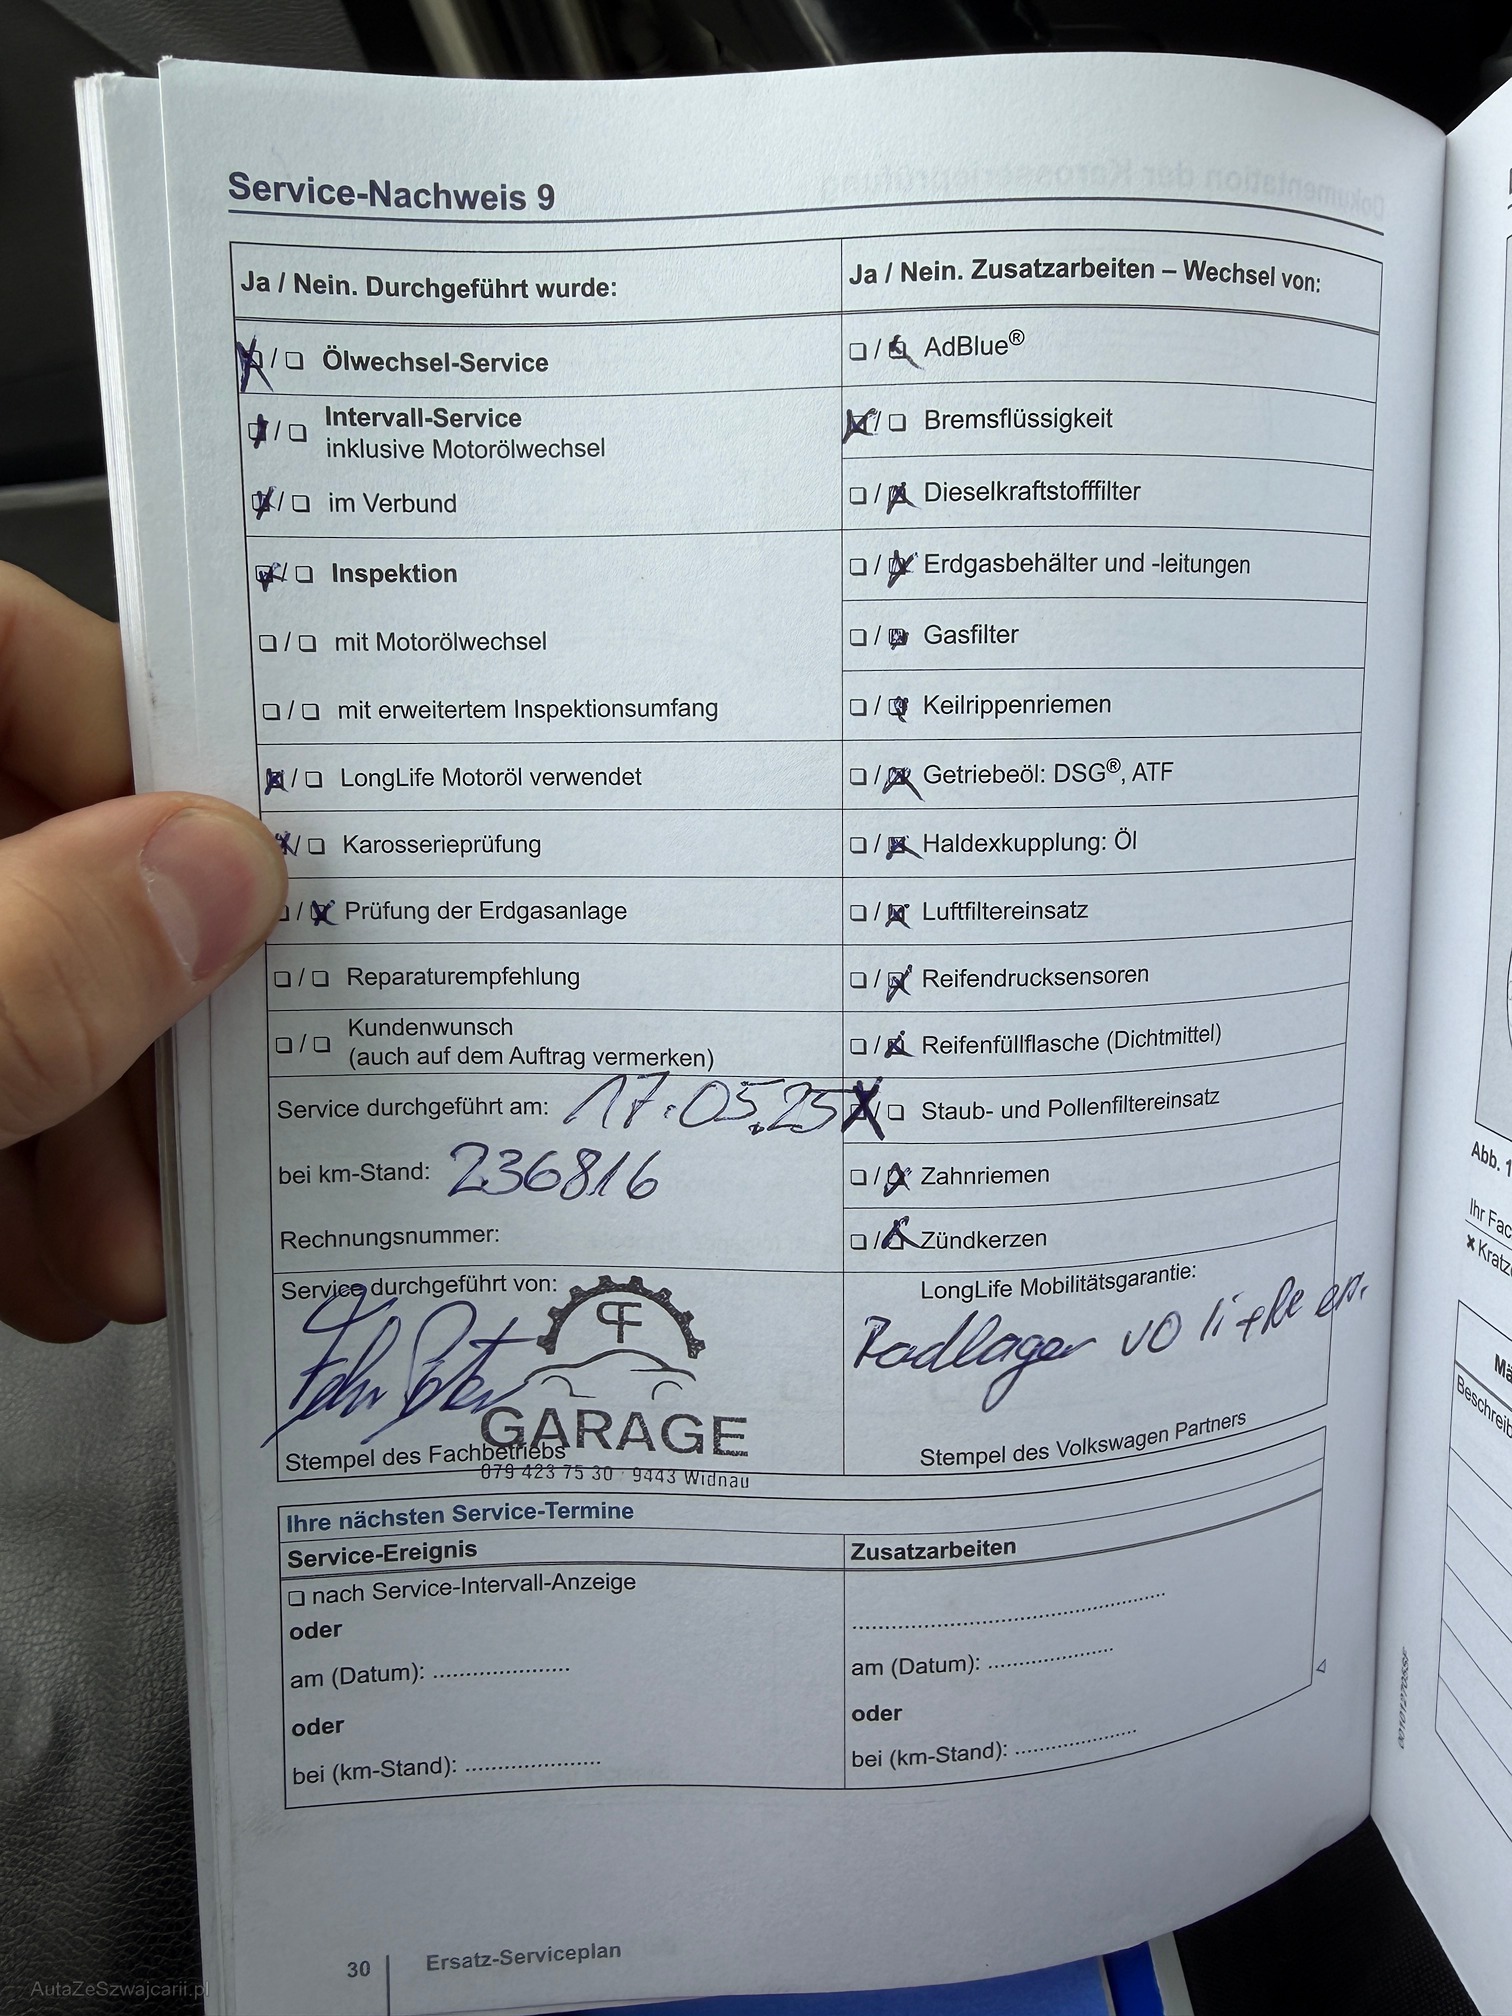 Service-Nachweis 9
Ja / Nein. Durchgeführt wurde:
Ölwechsel-Service
Intervall-Service
inklusive Motorölwechsel
im Verbund
Inspektion
mit Motorölwechsel
mit erweitertem Inspektionsumfang
LongLife Motoröl verwendet
Karosserieprüfung
Prüfung der Erdgasanlage
Reparaturempfehlung
Kundenwunsch
(auch auf dem Auftrag vermerken)
Service durchgeführt am: 17.05.25
bei km-Stand: 236816
Rechnungsnummer:
Service durchgeführt von:
GARAGE
Stempel des Fachbetriebs
079 423 75 30 · 9443 Widnau
Ja / Nein. Zusatzarbeiten – Wechsel von:
AdBlue®
Bremsflüssigkeit
Dieselkraftstofffilter
Erdgasbehälter und -leitungen
Gasfilter
Keilrippenriemen
Getriebeöl: DSG®, ATF
Haldexkupplung: Öl
Luftfiltereinsatz
Reifendrucksensoren
Reifenfüllflasche (Dichtmittel)
Staub- und Pollenfiltereinsatz
Zahnriemen
Zündkerzen
LongLife Mobilitätsgarantie:
Radlager vo li
Stempel des Volkswagen Partners
Ihre nächsten Service-Termine
Service-Ereignis
nach Service-Intervall-Anzeige
oder
am (Datum):
oder
bei (km-Stand):
Zusatzarbeiten
am (Datum):
oder
bei (km-Stand):
30 Ersatz-Serviceplan
Abb. 1
Ihr Fac
Kratz
Beschreib
AutaZeSzwajcarii.pl